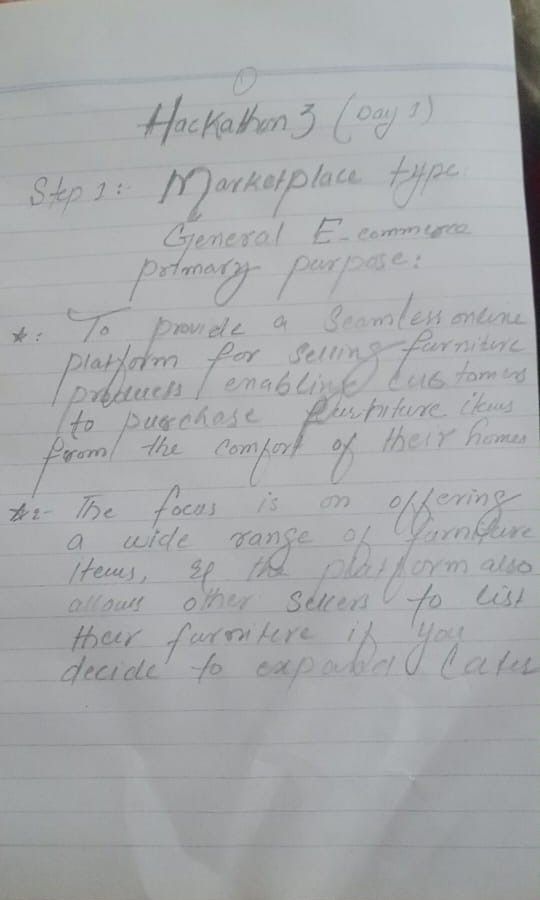 1
Hackathon 3 (Day 1)
Step 1:- Marketplace type:
General E-commerce
primary purpose:
*: To provide a Seamless online
platform for selling furniture
products, enabling customers
to purchase furniture items
from the comfort of their homes
*2- The focus is on offering
a wide range of furniture
Items, If the platform also
allows other Sellers to list
their furniture if you
decide to expand Later